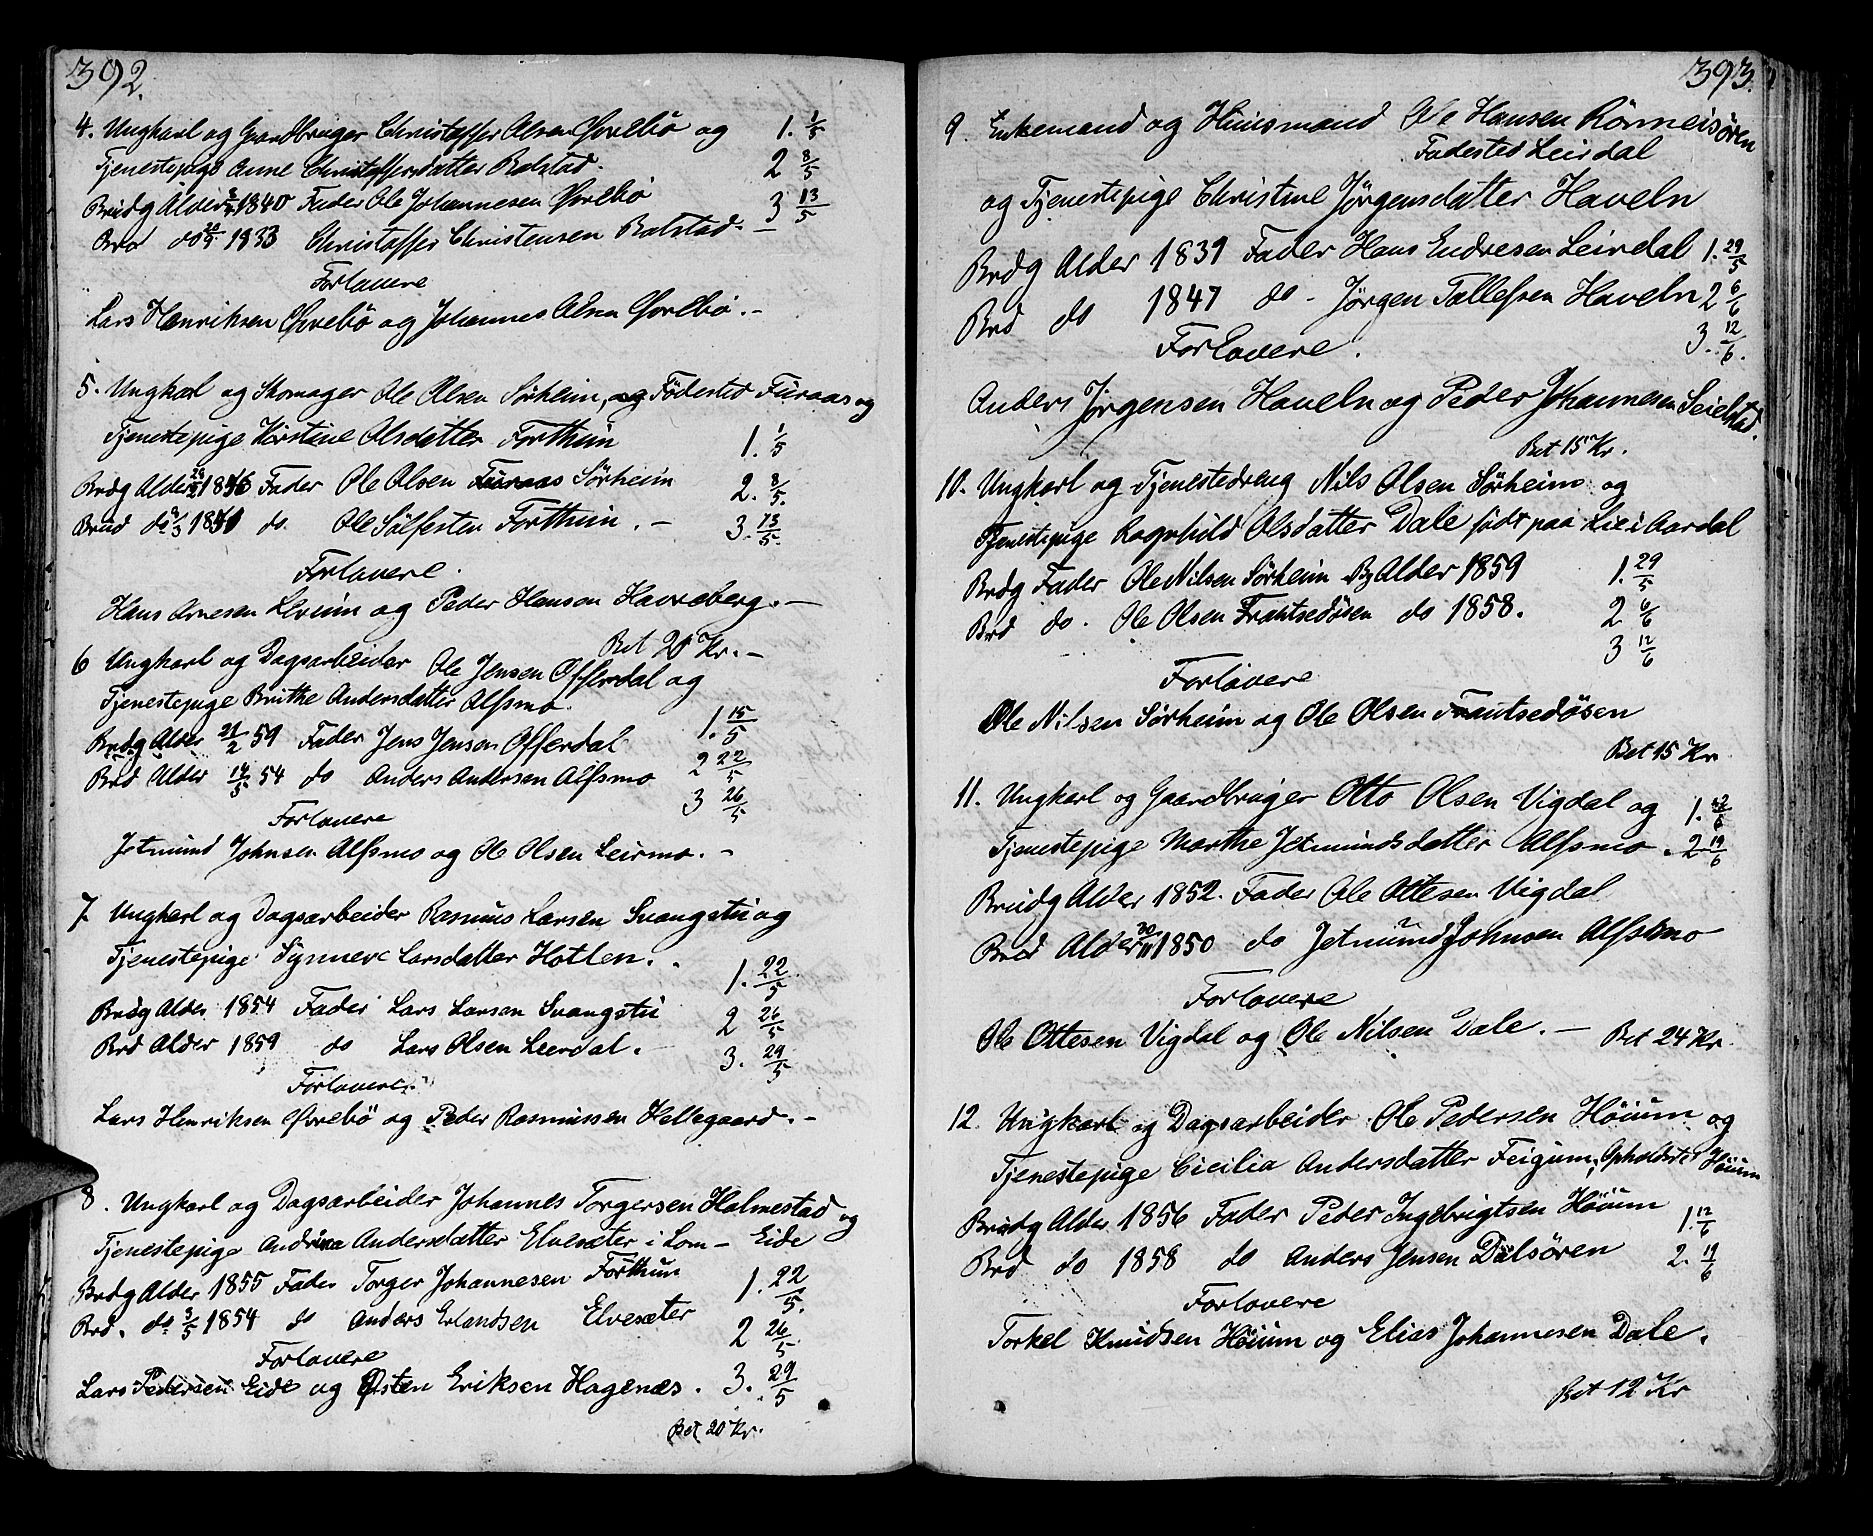 392.
4. Ungkarl og Gaardbruger Christoffer Olsen Øvrebö og 1. 1/5
Tjenestepige Anne Christoffersdatter Bolstad. 2 8/5
Brudg Alder 1840 Fader Ole Johannesen Øvrebö 3 13/5
Brd do 1833 Christoffer Christensen Bolstad. –
Forlovere
Lars Henriksen Øvrebö og Johannes Olsen Øvrebö. –
5. Ungkarl og Skomager Ole Olsen Sørheim, og Födested Furaas og
Tjenestepige Kirstine Olsdatter Forthun 1. 1/5
Brdg Alder Fader Ole Olsen Furaas Sörheim 2. 8/5.
Brud do do. Ole Sölfesten Forthun. – 3. 13/5.
Forlovere.
Hans Arnesen Kvium og Peder Hanson Havreberg. –
Bet 20 Kr. –
6 Ungkarl og Dagsarbeider Ole Jensen Offerdal og
Tjenestepige Brithe Andersdatter Alfsmo.
Brdg Alder 21/2 59 Fader Jens Jenson Offerdal 1. 15/5
Brd Alder 14/5 54 do Anders Andersen Alfsmo 2 22/5
3 26/5
Forlovere
Jetmund Johnsen Alfsmo og Ole Olsen Leirmo. –
7 Ungkarl og Dagsarbeider Rasmus Larsen Svangstu og
Tjenestepige Synneve Larsdatter Hotlen. 1. 22/5
Brdg Alder 1854 Fader Lars Larsen Svangstu 2 26/5
Brd Alder 1859 do Lars Olsen Leerdal. 3. 29/5
Forlovere
Lars Henriksen Øvrebö og Peder Rasmussen Hellegaard. –
8. Ungkarl og Dagsarbeider Johannes Torgersen Holmestad og
Tjenestepige Andrina Andersdatter Elvesæter i Lom – Eide
Brdg Alder 1855 Fader Torger Johannesen Forthun 1. 22/5.
Brd. do 3/5 1854 do Anders Erlandsen Elvesæter 2 26/5
Forlovere
Lars Pedersen Eide og Østen Eriksen Hagenæs. 3. 29/5
Bet 20 Kr.
393.
9 Enkemand og Huusmand Ole Hansen Rönneisören
Fødested Leirdal
og Tjenestepige Christine Jörgensdatter Haveln
Brdg Alder 1839 Fader Hans Endresen Leirdal 1. 29/5
Brd do 1847 do - Jörgen Tollefsen Haveln 2 6/6
Forlovere. 3. 12/6.
Anders Jörgensen Haveln og Peder Johannesen Seielstad.
Bet 15 Kr.
10. Ungkarl og Tjenestedreng Nils Olsen Sörheim og
Tjenestepige Ragnhild Olsdatter Dale födt paa Lie i Aardal
Brdg Fader Ole Nilsen Sörheim Bg Alder 1859 1. 29/5
Brd do. Ole Olsen Frautsedösen do 1858. 2 6/6
3 12/6
Forlovere
Ole Nilsen Sörheim og Ole Olsen Frautsedösen
Bet 15 Kr
11. Ungkarl og Gaardbruger Otto Olsen Vigdal og 1. 12/6
Tjenestepige Marthe Jetmundsdatter Alfsmo. 2 19/6
Brudg Alder 1852. Fader Ole Ottesen Vigdal
Brd Alder 30/11 1850 do Jetmund Johnsen Alfsmo
Forlovere
Ole Ottesen Vigdal og Ole Nilsen Dale. – Bet 24 Kr
12. Ungkarl og Dagsarbeider Ole Pedersen Höium og
Tjenestepige Cicilia Andersdatter Feigum, Opholdsted Höium
Brudg Alder 1856 Fader Peder Ingebrigtsen Höium 1. 12/6
Brd do 1858 do Anders Jensen Dalsören 2. 19/6
Forlovere
Torkel Knudsen Höium og Elias Johannesen Dale.
Bet 12 Kr